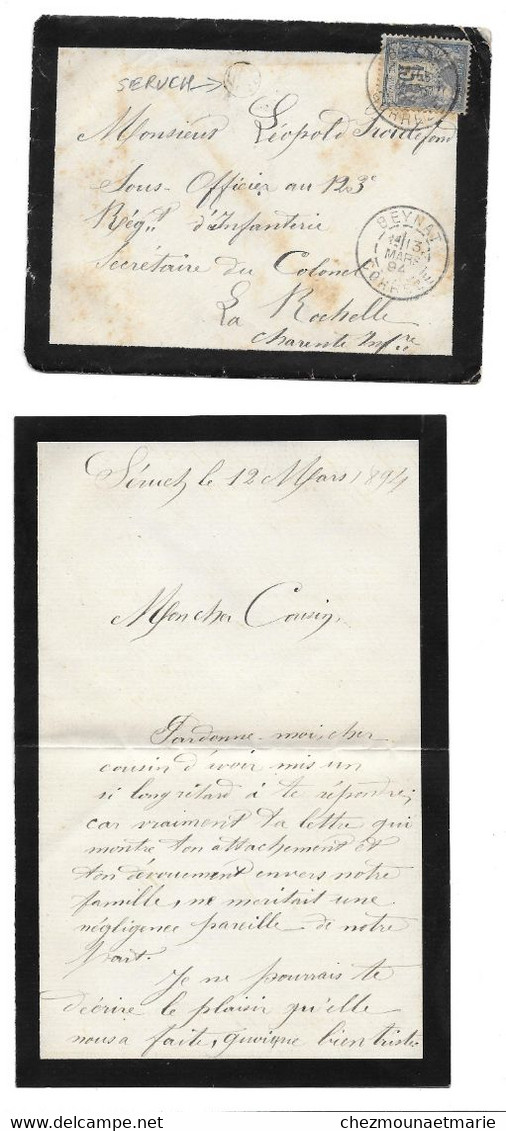 SERUCH →
BEYNAT
CORRÈZE
Monsieur Léopold
Sous-Officier au 123e
Régnt d'Infanterie
Secrétaire du Colonel
La Rochelle
Charente Infre
BEYNAT
13
MARS
94
CORRÈZE
Séruch le 12 Mars 1894
Mon cher Cousin,
Pardonne-moi, cher
cousin d'avoir mis un
si long retard à te répondre,
car vraiment ta lettre qui
montre ton attachement et
ton dévouement envers notre
famille, ne meritait une
négligence pareille de notre
part.
Je ne pourrais te
décrire le plaisir qu'elle
nous a faite, quoique bien triste
chezmounaetmarie.delcampe.net